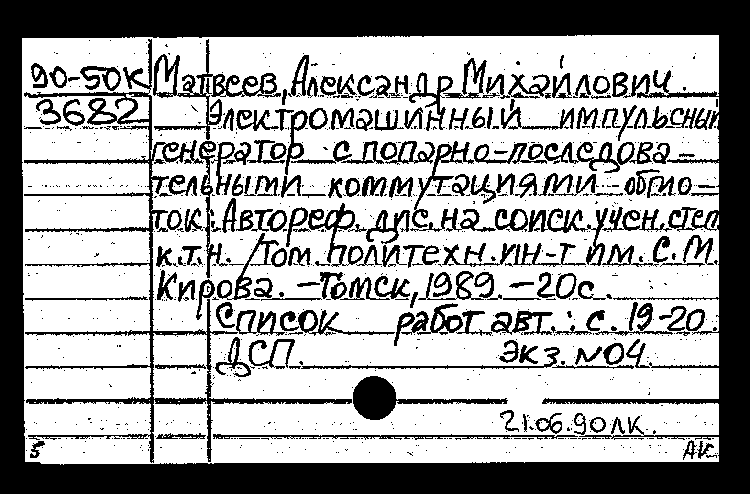 90-50К Матвеев, Александр Михайлович.
3682 Электромашинный импульсный
генератор с попарно-последова-
тельными коммутациями обмо-
ток: Автореф. дис. на соиск. учен. степ.
к.т.н. /Том. политехн. ин-т им. С.М.
Кирова. - Томск, 1989. - 20с.
Список работ авт.: с. 19-20.
ДСП. Экз. №04.
21.06.90 ЛК.
5 АК